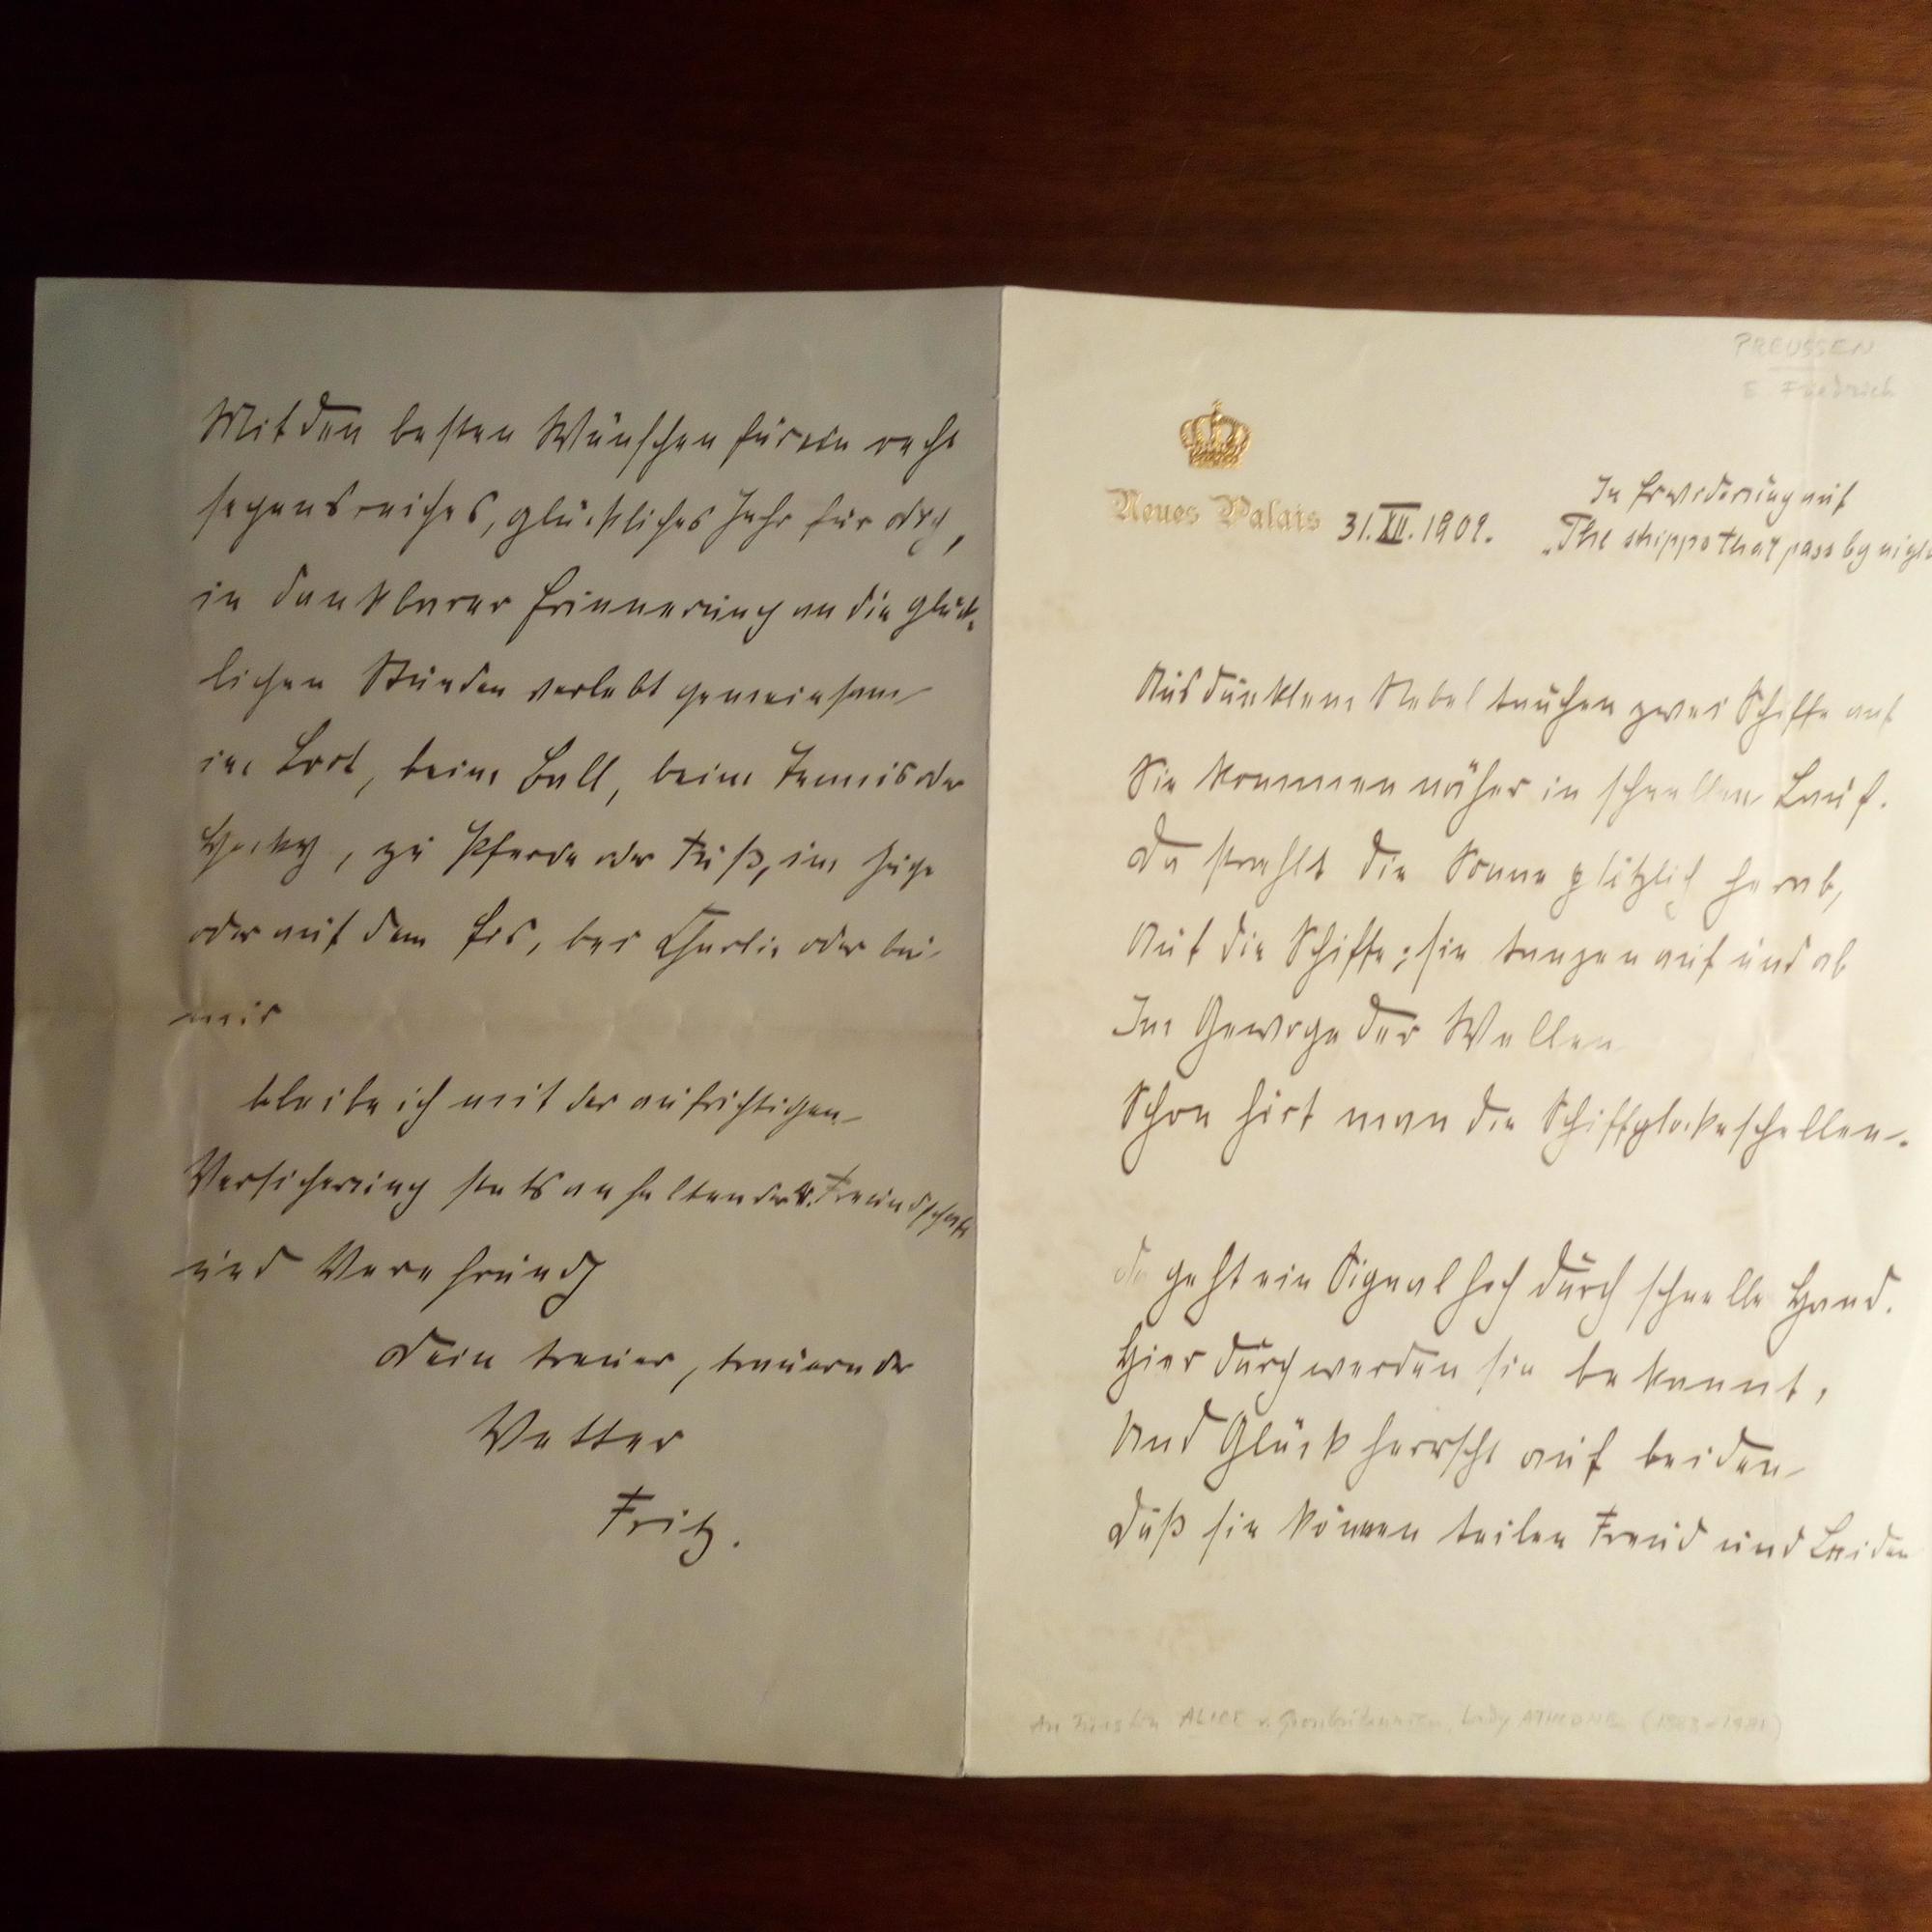 PREUSSEN
E. Friedrich
Neues Palais 31.XII.1909.
In Erwiderung auf
„The shipps that pass by night
Aus dunklem Nebel tauchen zwei Schiffe auf
Sie kommen näher in schnellem Lauf.
Da strahlt die Sonne plötzlich herab,
Auf die Schiffe; sie tanzen auf und ab
Im Gewoge der Wellen
Schon hört man die Schiffglocke schellen.
Da geht ein Signal hoch durch schnelle Hand.
Hierdurch werden sie bekannt,
Und Glück herrscht auf beiden
Daß sie können teilen Freud und Leiden
An Fürstin ALICE v. Grossbritannien, Lady ATHLONE (1883-1981)
Mit den besten Wünschen für ein recht
segensreiches, glückliches Jahr für Dich,
in dankbarer Erinnerung an die glück-
lichen Stunden verlebt gemeinsam
im Boot, beim Ball, beim Tennis oder
Hocky, zu Pferde oder Fuß, im Zuge
oder auf dem Eis, bei Charlie oder bei
mir
bleibe ich mit der aufrichtigen
Versicherung stets anhaltender Freundschaft
und Verehrung
Dein treuer, trauernder
Vetter
Fritz.